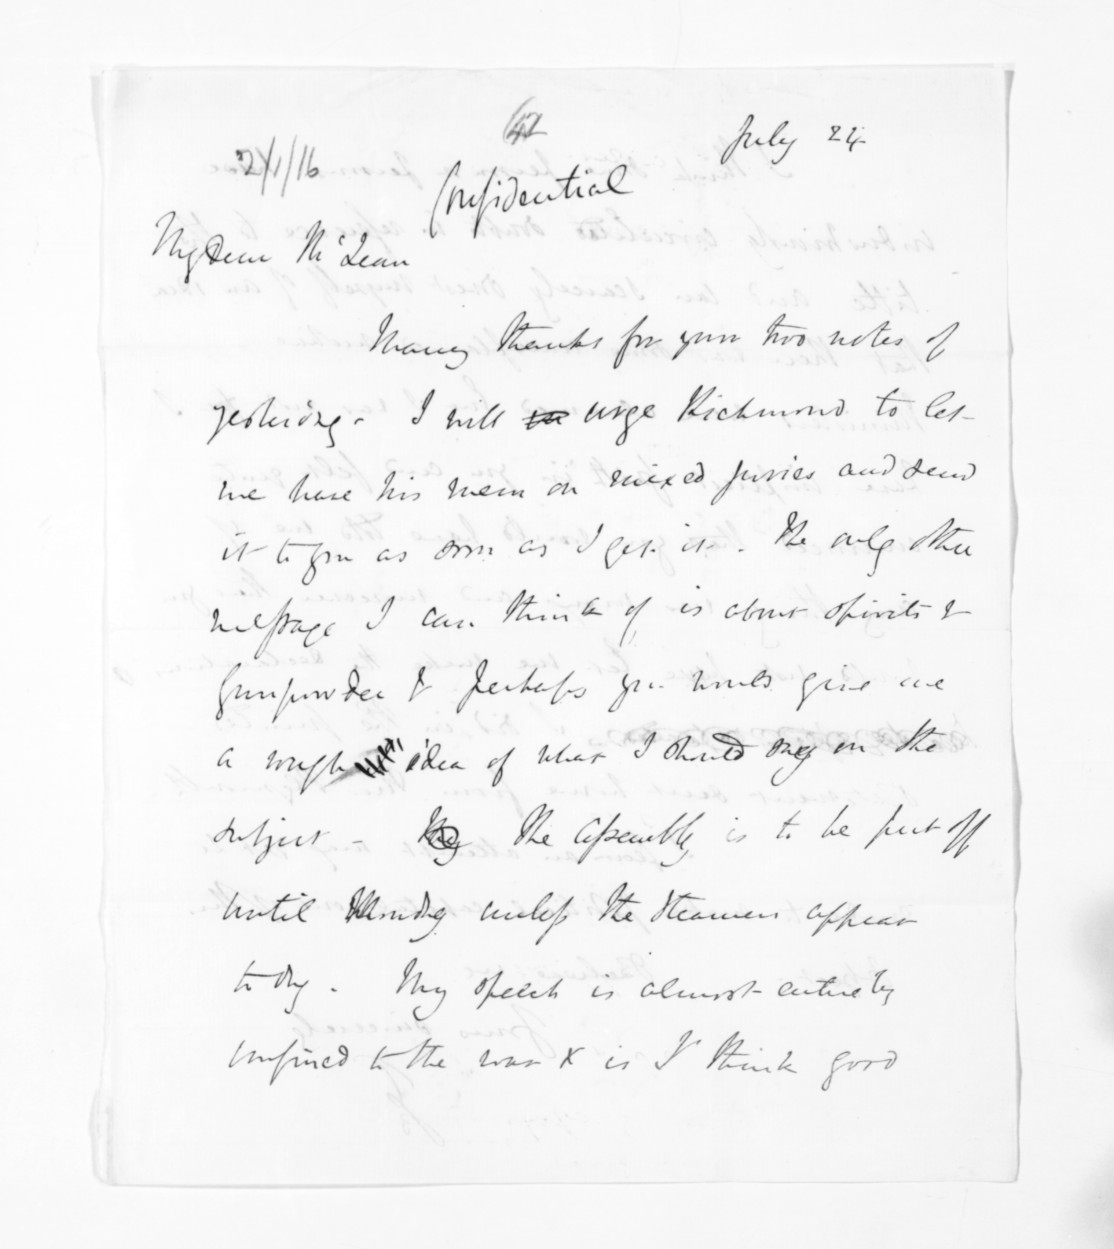 42
July 24
Confidential
My Dear McLean
Many thanks for your two notes of
yesterday. I will urge Richmond to let
me have his mem on mixed Juries and send
it to you as soon as I get it. The only other
message I can think of is about spirits &
Gunpowder & perhaps you would give me
a rough idea of what I should say on the
subject - The Assembly is to be put off
until Monday unless the steamers appear
to day. My speech is almost entirely
confined to the war & is I think good